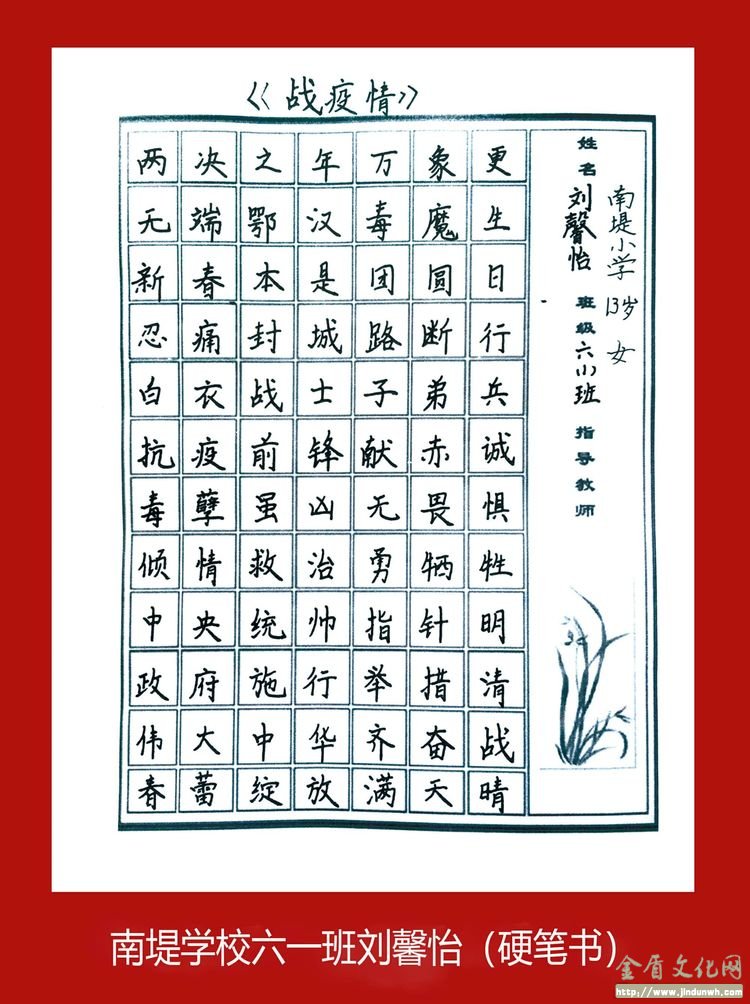 《战疫情》
两决之年万象更
无端鄂汉毒魔生
新春本是团圆日
忍痛封城路断行
白衣战士子弟兵
抗疫前锋献赤诚
毒孽虽凶无畏惧
倾情救治勇牺牲
中央统帅指针明
政府施行举措清
伟大中华齐奋战
春蕾绽放满天晴
姓名 刘馨怡 班级 六(1)班 指导教师
南堤小学 13岁 女
南堤学校六一班刘馨怡（硬笔书）
金盾文化网
http://www.jindunwh.com